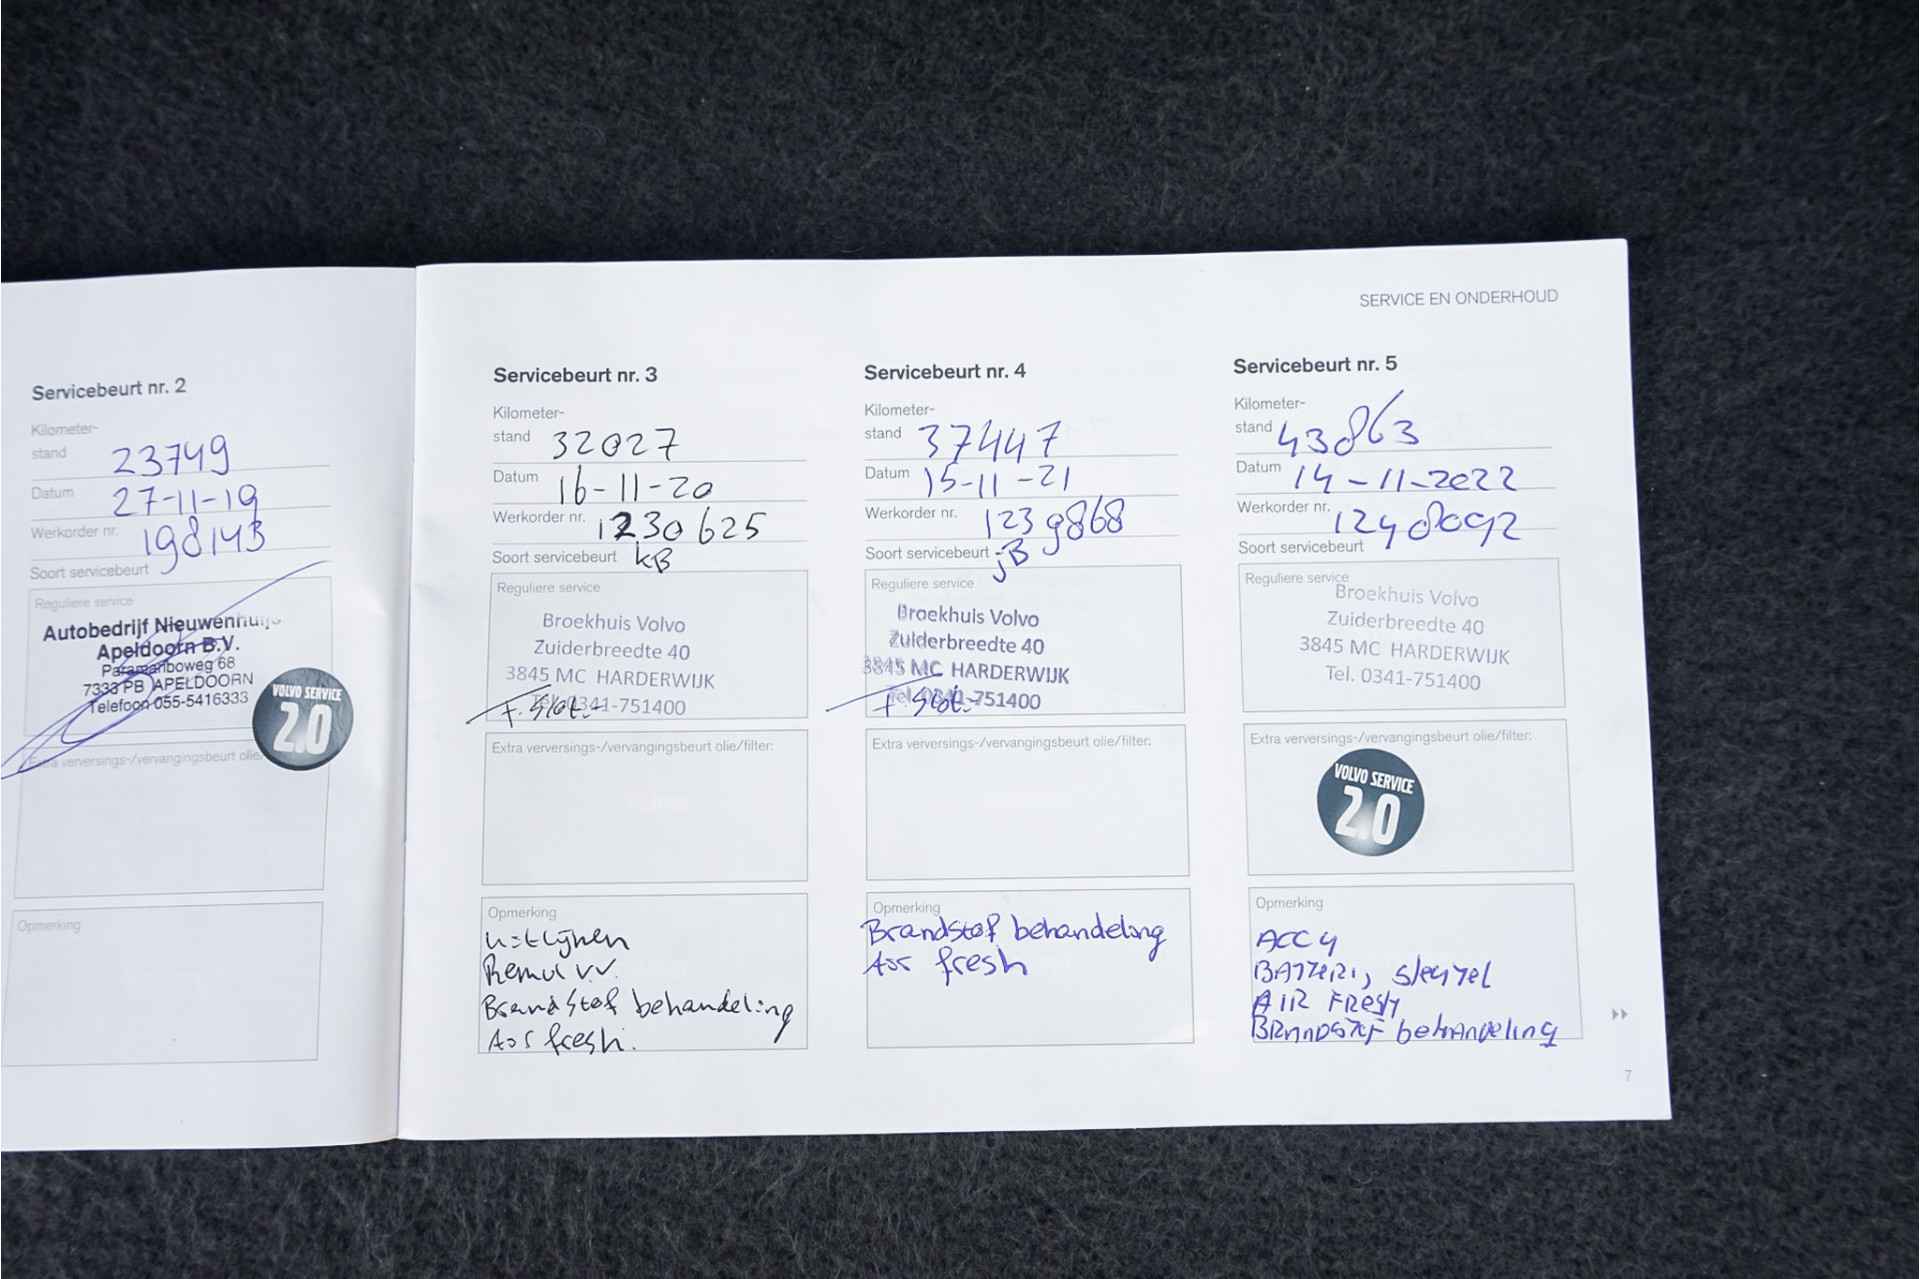 SERVICE EN ONDERHOUD
Servicebeurt nr. 2
Kilometer-
stand 23749
Datum 27-11-19
Werkorder nr. 198143
Soort servicebeurt
Reguliere service
Autobedrijf Nieuwenhuijs
Apeldoorn B.V.
Paramariboweg 68
7333 PB APELDOORN
Telefoon 055-5416333
VOLVO SERVICE
2.0
Extra verversings-/vervangingsbeurt olie/
Opmerking
Servicebeurt nr. 3
Kilometer-
stand 32027
Datum 16-11-20
Werkorder nr. 1230625
Soort servicebeurt kB
Reguliere service
Broekhuis Volvo
Zuiderbreedte 40
3845 MC HARDERWIJK
Tel. 0341-751400
F. Slot.
Extra verversings-/vervangingsbeurt olie/filter:
Opmerking
uitlijnen
Remol vv.
Brandstof behandeling
Air fresh.
Servicebeurt nr. 4
Kilometer-
stand 37447
Datum 15-11-21
Werkorder nr. 1239868
Soort servicebeurt jB
Reguliere service
Broekhuis Volvo
Zuiderbreedte 40
3845 MC HARDERWIJK
Tel. 0341-751400
F. Slot.
Extra verversings-/vervangingsbeurt olie/filter:
Opmerking
Brandstof behandeling
Air fresh
Servicebeurt nr. 5
Kilometer-
stand 43863
Datum 14-11-2022
Werkorder nr. 1248092
Soort servicebeurt
Reguliere service
Broekhuis Volvo
Zuiderbreedte 40
3845 MC HARDERWIJK
Tel. 0341-751400
Extra verversings-/vervangingsbeurt olie/filter:
VOLVO SERVICE
2.0
Opmerking
ACCU
BATTERIJ, SLEUTEL
AIR FRESH
BRANDSTOF behANDELiNg
7